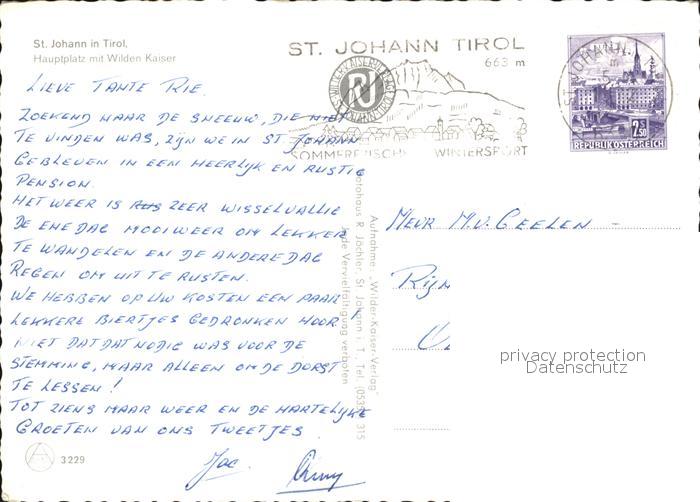 St. Johann in Tirol,
Hauptplatz mit Wilden Kaiser
ST. JOHANN TIROL
663 m
WINTERSPORT
ST. JOHANN
2.50
REPUBLIK ÖSTERREICH
LIEVE TANTE RIE.
ZOEKEND NAAR DE SNEEUW, DIE NIET
TE VINDEN WAS, ZIJN WE IN ST JOHANN
GEBLEVEN IN EEN HEERLIJK EN RUSTIG
PENSION.
HET WEER IS ZEER WISSELVALLIG
DE ENE DAG MOOI WEER OM LEKKER
TE WANDELEN EN DE ANDERE DAG
REGEN OM UIT TE RUSTEN.
WE HEBBEN OP UW KOSTEN EEN PAAR
LEKKERE BIERTJES GEDRONKEN HOOR!
NIET DAT DAT NODIG WAS VOOR DE
STEMMING, MAAR ALLEEN OM DE DORST
TE LESSEN!
TOT ZIENS MAAR WEER EN DE HARTELIJKE
GROETEN VAN ONS TWEETJES
Jac.
3229
Aufnahme: „Wilder-Kaiser-Verlag"
Fotohaus R. Jöchler, St. Johann i. T., Tel. (05352) 315
Jede Vervielfältigung verboten
MEVR M.V. GEELEN -
privacy protection
Datenschutz